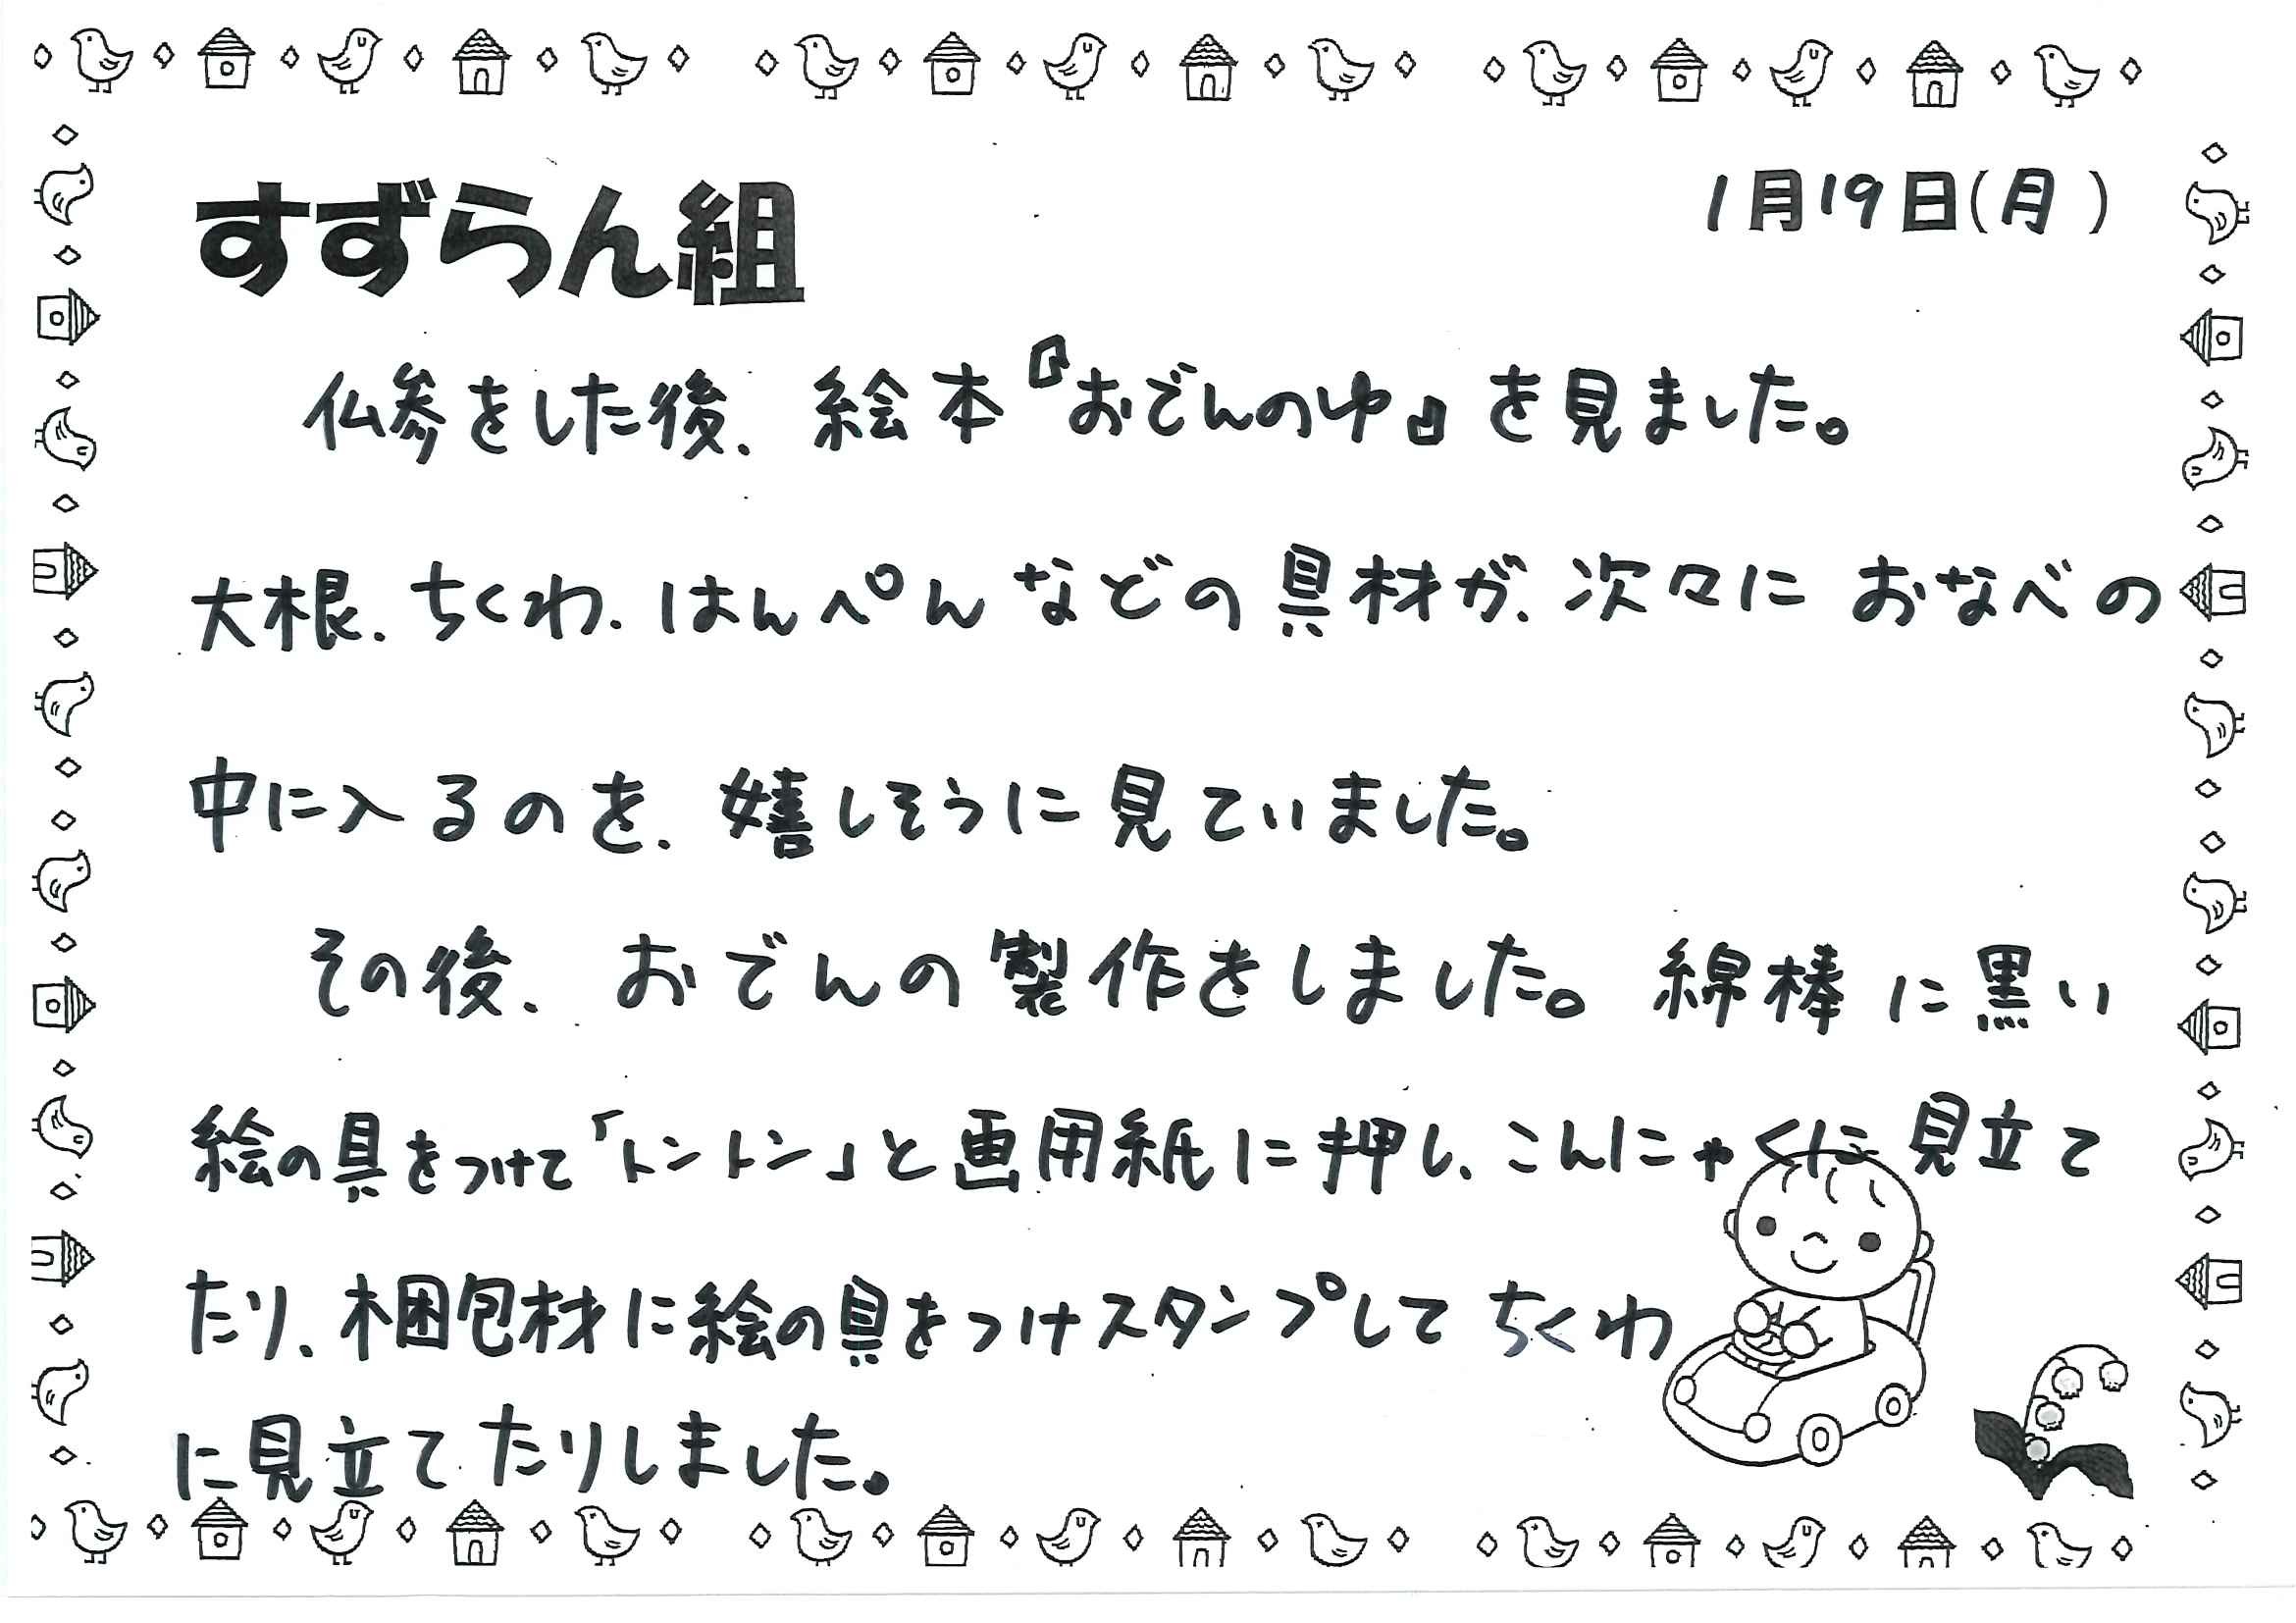 すずらん組
1月19日(月)
仏参をした後、絵本『おでんのゆ』を見ました。
大根、ちくわ、はんぺんなどの具材が、次々におなべの
中に入るのを、嬉しそうに見ていました。
その後、おでんの製作をしました。綿棒に黒い
絵の具をつけて「トントン」と画用紙に押し、こんにゃくに見立て
たり、梱包材に絵の具をつけスタンプしてちくわ
に見立てたりしました。